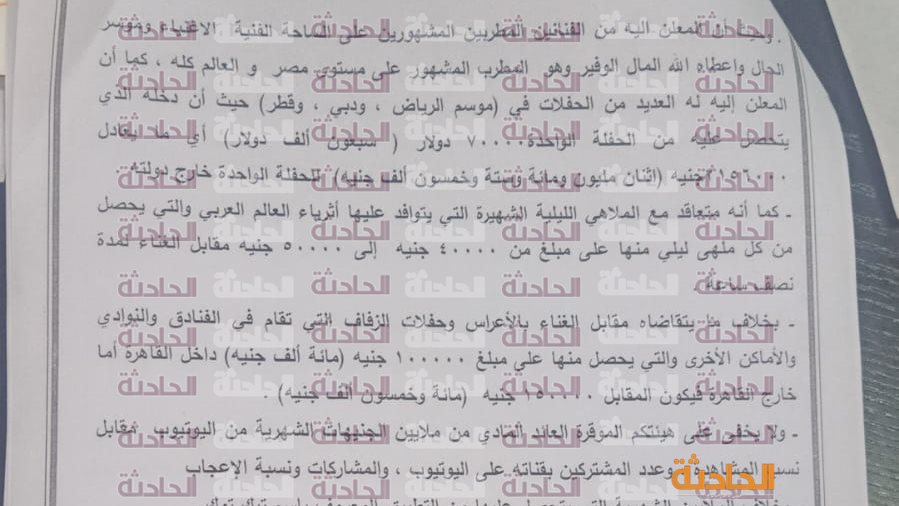 . وحيث أن المعلن اليه من الفنانين المطربين المشهورين على الساحة الفنية الاغنياء وميسر
الحال واعطاه الله المال الوفير وهو المطرب المشهور على مستوى مصر و العالم كله ، كما أن
المعلن إليه له العديد من الحفلات في (موسم الرياض ، ودبي ، وقطر) حيث أن دخله الذي
يتحصل عليه من الحفلة الواحدة ٧٠٠٠٠ دولار ( سبعون ألف دولار) أي ما يعادل
٢١٥٦٠٠٠ جنيه (اثنان مليون ومائة وستة وخمسون ألف جنيه) للحفلة الواحدة خارج دولته
- كما أنه متعاقد مع الملاهي الليلية الشهيرة التي يتوافد عليها أثرياء العالم العربي والتي يحصل
من كل ملهى ليلي منها على مبلغ من ٤٠٠٠٠ جنيه إلى ٥٠٠٠٠ جنيه مقابل الغناء لمدة
نصف ساعة .
- بخلاف ما يتقاضاه مقابل الغناء بالأعراس وحفلات الزفاف التي تقام في الفنادق والنوادي
والأماكن الأخرى والتي يحصل منها على مبلغ ١٠٠٠٠٠ جنيه (مائة ألف جنيه) داخل القاهرة أما
خارج القاهرة فيكون المقابل ١٥٠٠٠٠ جنيه (مائة وخمسون ألف جنيه) .
- ولا يخفى على هيئتكم الموقرة العائد المادي من ملايين الجنيهات الشهرية من اليوتيوب مقابل
نسبة المشاهدة وعدد المشتركين بقناته على اليوتيوب ، والمشاركات ونسبة الاعجاب
الحادثة